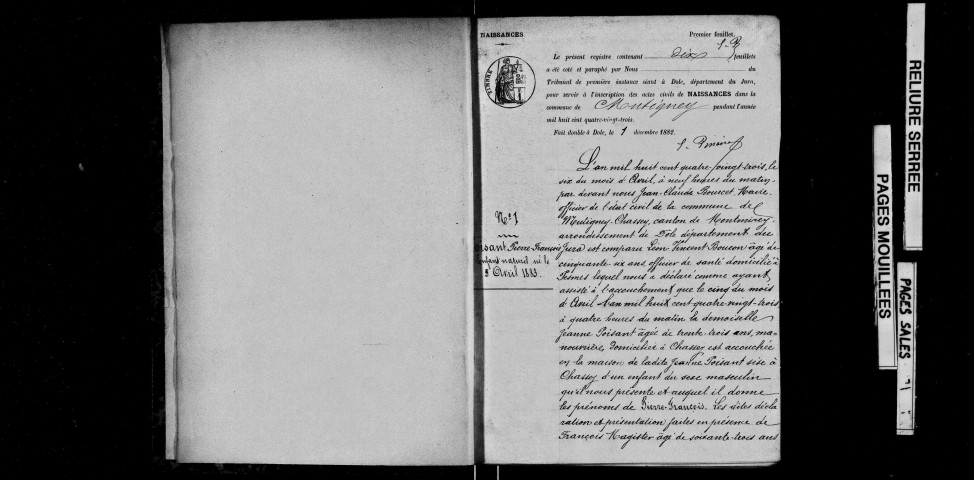 NAISSANCES
Premier feuillet.
Le présent registre contenant dix feuillets
a été coté et paraphé par Nous du
Tribunal de première instance séant à Dole, département du Jura,
pour servir à l'inscription des actes civils de NAISSANCES dans la
commune de Mutigney pendant l'année
mil huit cent quatre-vingt-trois.
Fait double à Dole, le 1 décembre 1882.
TIMBRE
L'an mil huit cent quatre-vingt-trois, le
six du mois d'Avril, à neuf heures du matin,
par devant nous Jean-Claude Maire
officier de l'état civil de la commune de
Mutigney-Chassey, canton de Montmirey,
arrondissement de Dole département du
Jura est comparu Léon Vincent Boucon âgé de
cinquante-six ans, officier de santé domicilié à
Pesmes lequel nous a déclaré comme ayant
assisté à l'accouchement que le cinq du mois
d'Avril l'an mil huit cent quatre-vingt-trois
à quatre heures du matin la demoiselle
Jeanne Poisant âgée de trente-trois ans, ma-
nouvrière, domiciliée à Chassey est accouchée
en la maison de ladite Jeanne Poisant sise à
Chassey d'un enfant du sexe masculin
qu'il nous présente et auquel il donne
les prénoms de Pierre-François. Les dites décla
ration et présentation faites en présence de
François Magister âgé de soixante-trois ans
N° 1
Pierre-François
enfant naturel né le
Avril 1883.
RELIURE SERREE
PAGES MOUILLEES
PAGES SALES